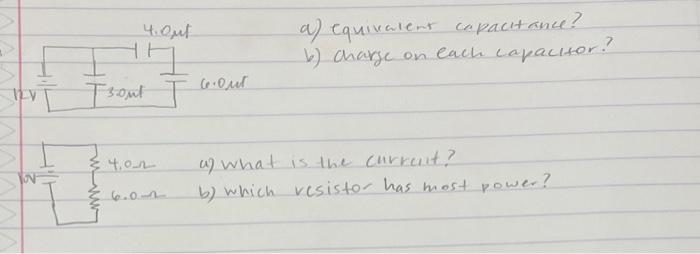 4.0μf
a) equivalent capacitance?
b) charge on each capacitor?
12V
3.0μf
6.0μf
4.0Ω
a) what is the current?
10V
6.0Ω
b) which resistor has most power?